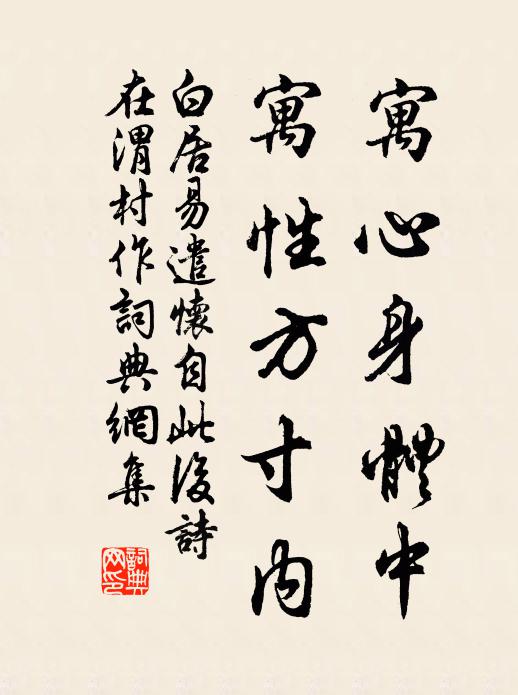 寓心身體中
寓性方寸內
白居易遣懷自此後詩
在渭村作詞典網集
詞典
网印